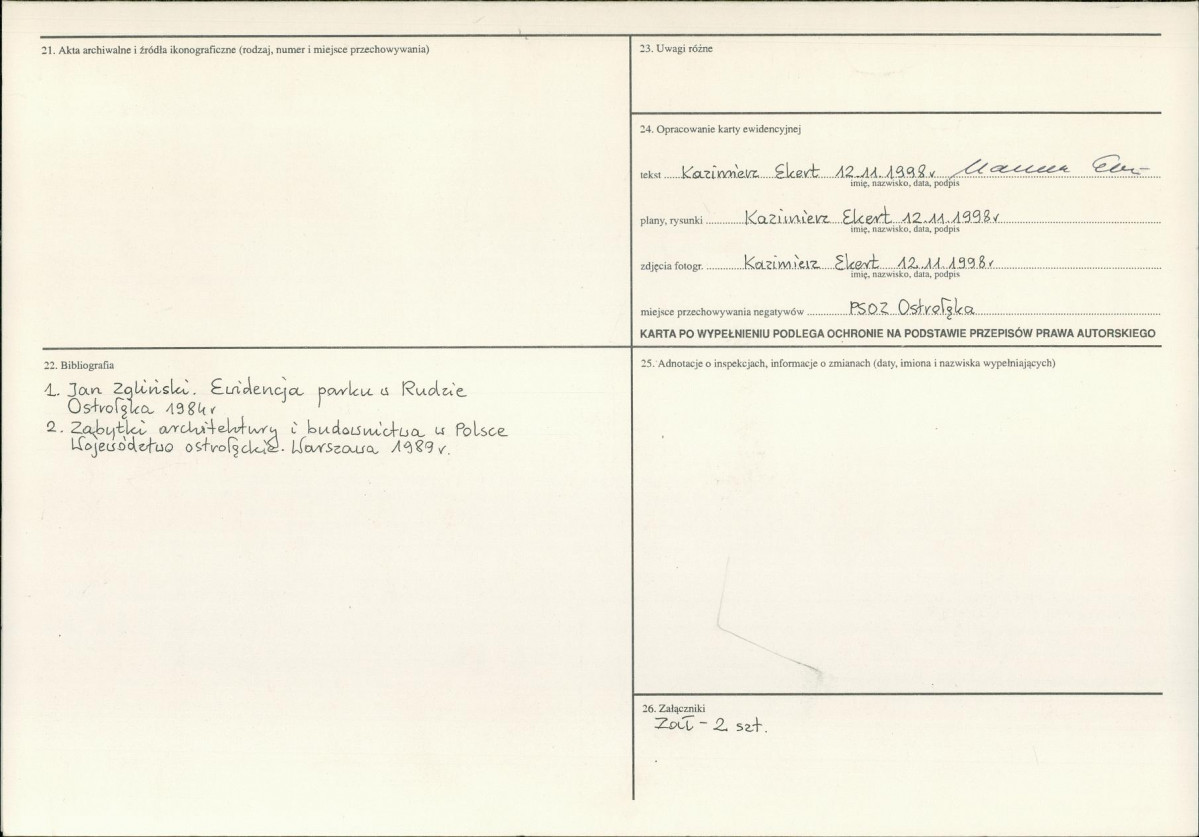 21. Akta archiwalne i źródła ikonograficzne (rodzaj, numer i miejsce przechowywania)
22. Bibliografia
1. Jan Zgliński. Ewidencja parku w Rudzie
Ostrołęka 1984r
2. Zabytki architektury i budownictwa w Polsce
Województwo ostrołęckie. Warszawa 1989r.
23. Uwagi różne
24. Opracowanie karty ewidencyjnej
tekst Kazimierz Ekert 12.11.1998r
imię, nazwisko, data, podpis
plany, rysunki Kazimierz Ekert 12.11.1998r
imię, nazwisko, data, podpis
zdjęcia fotogr. Kazimierz Ekert 12.11.1998r
imię, nazwisko, data, podpis
miejsce przechowywania negatywów PSOZ Ostrołęka
KARTA PO WYPEŁNIENIU PODLEGA OCHRONIE NA PODSTAWIE PRZEPISÓW PRAWA AUTORSKIEGO
25. Adnotacje o inspekcjach, informacje o zmianach (daty, imiona i nazwiska wypełniających)
26. Załączniki
Zał - 2 szt.